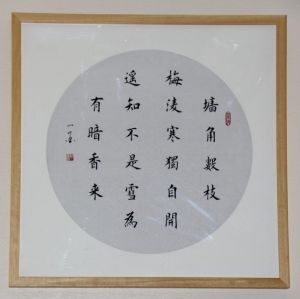 墻角數枝
梅淩寒獨自開
遥知不是雪為
有暗香来